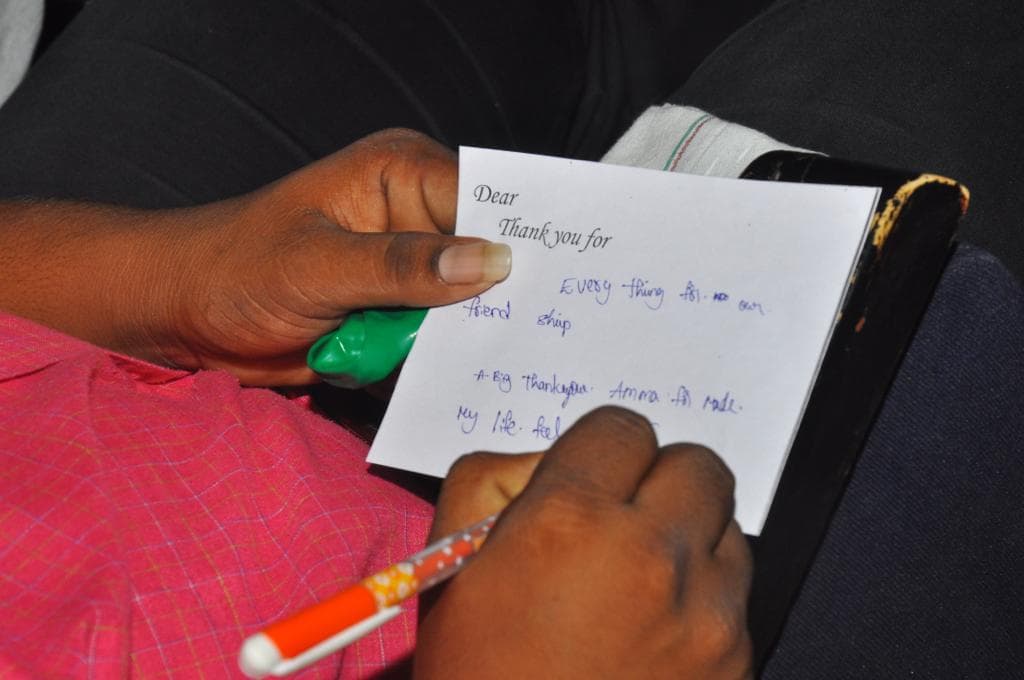 Dear
Thank you for
Every thing for our
friend ship
A Big thankyou. Amma for made.
My life. feel